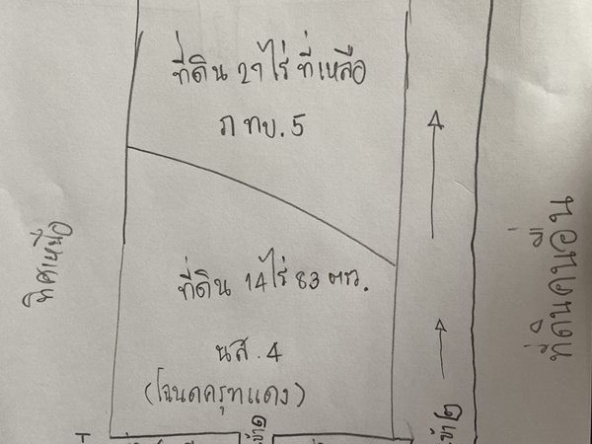 ที่ดิน 27 ไร่ ที่เหลือ
ภ ทบ. 5
ทิศเหนือ
ที่ดิน 14 ไร่ 83 ตรว.
นส. 4
(โฉนดครุฑแดง)
ที่ดินคนอื่น